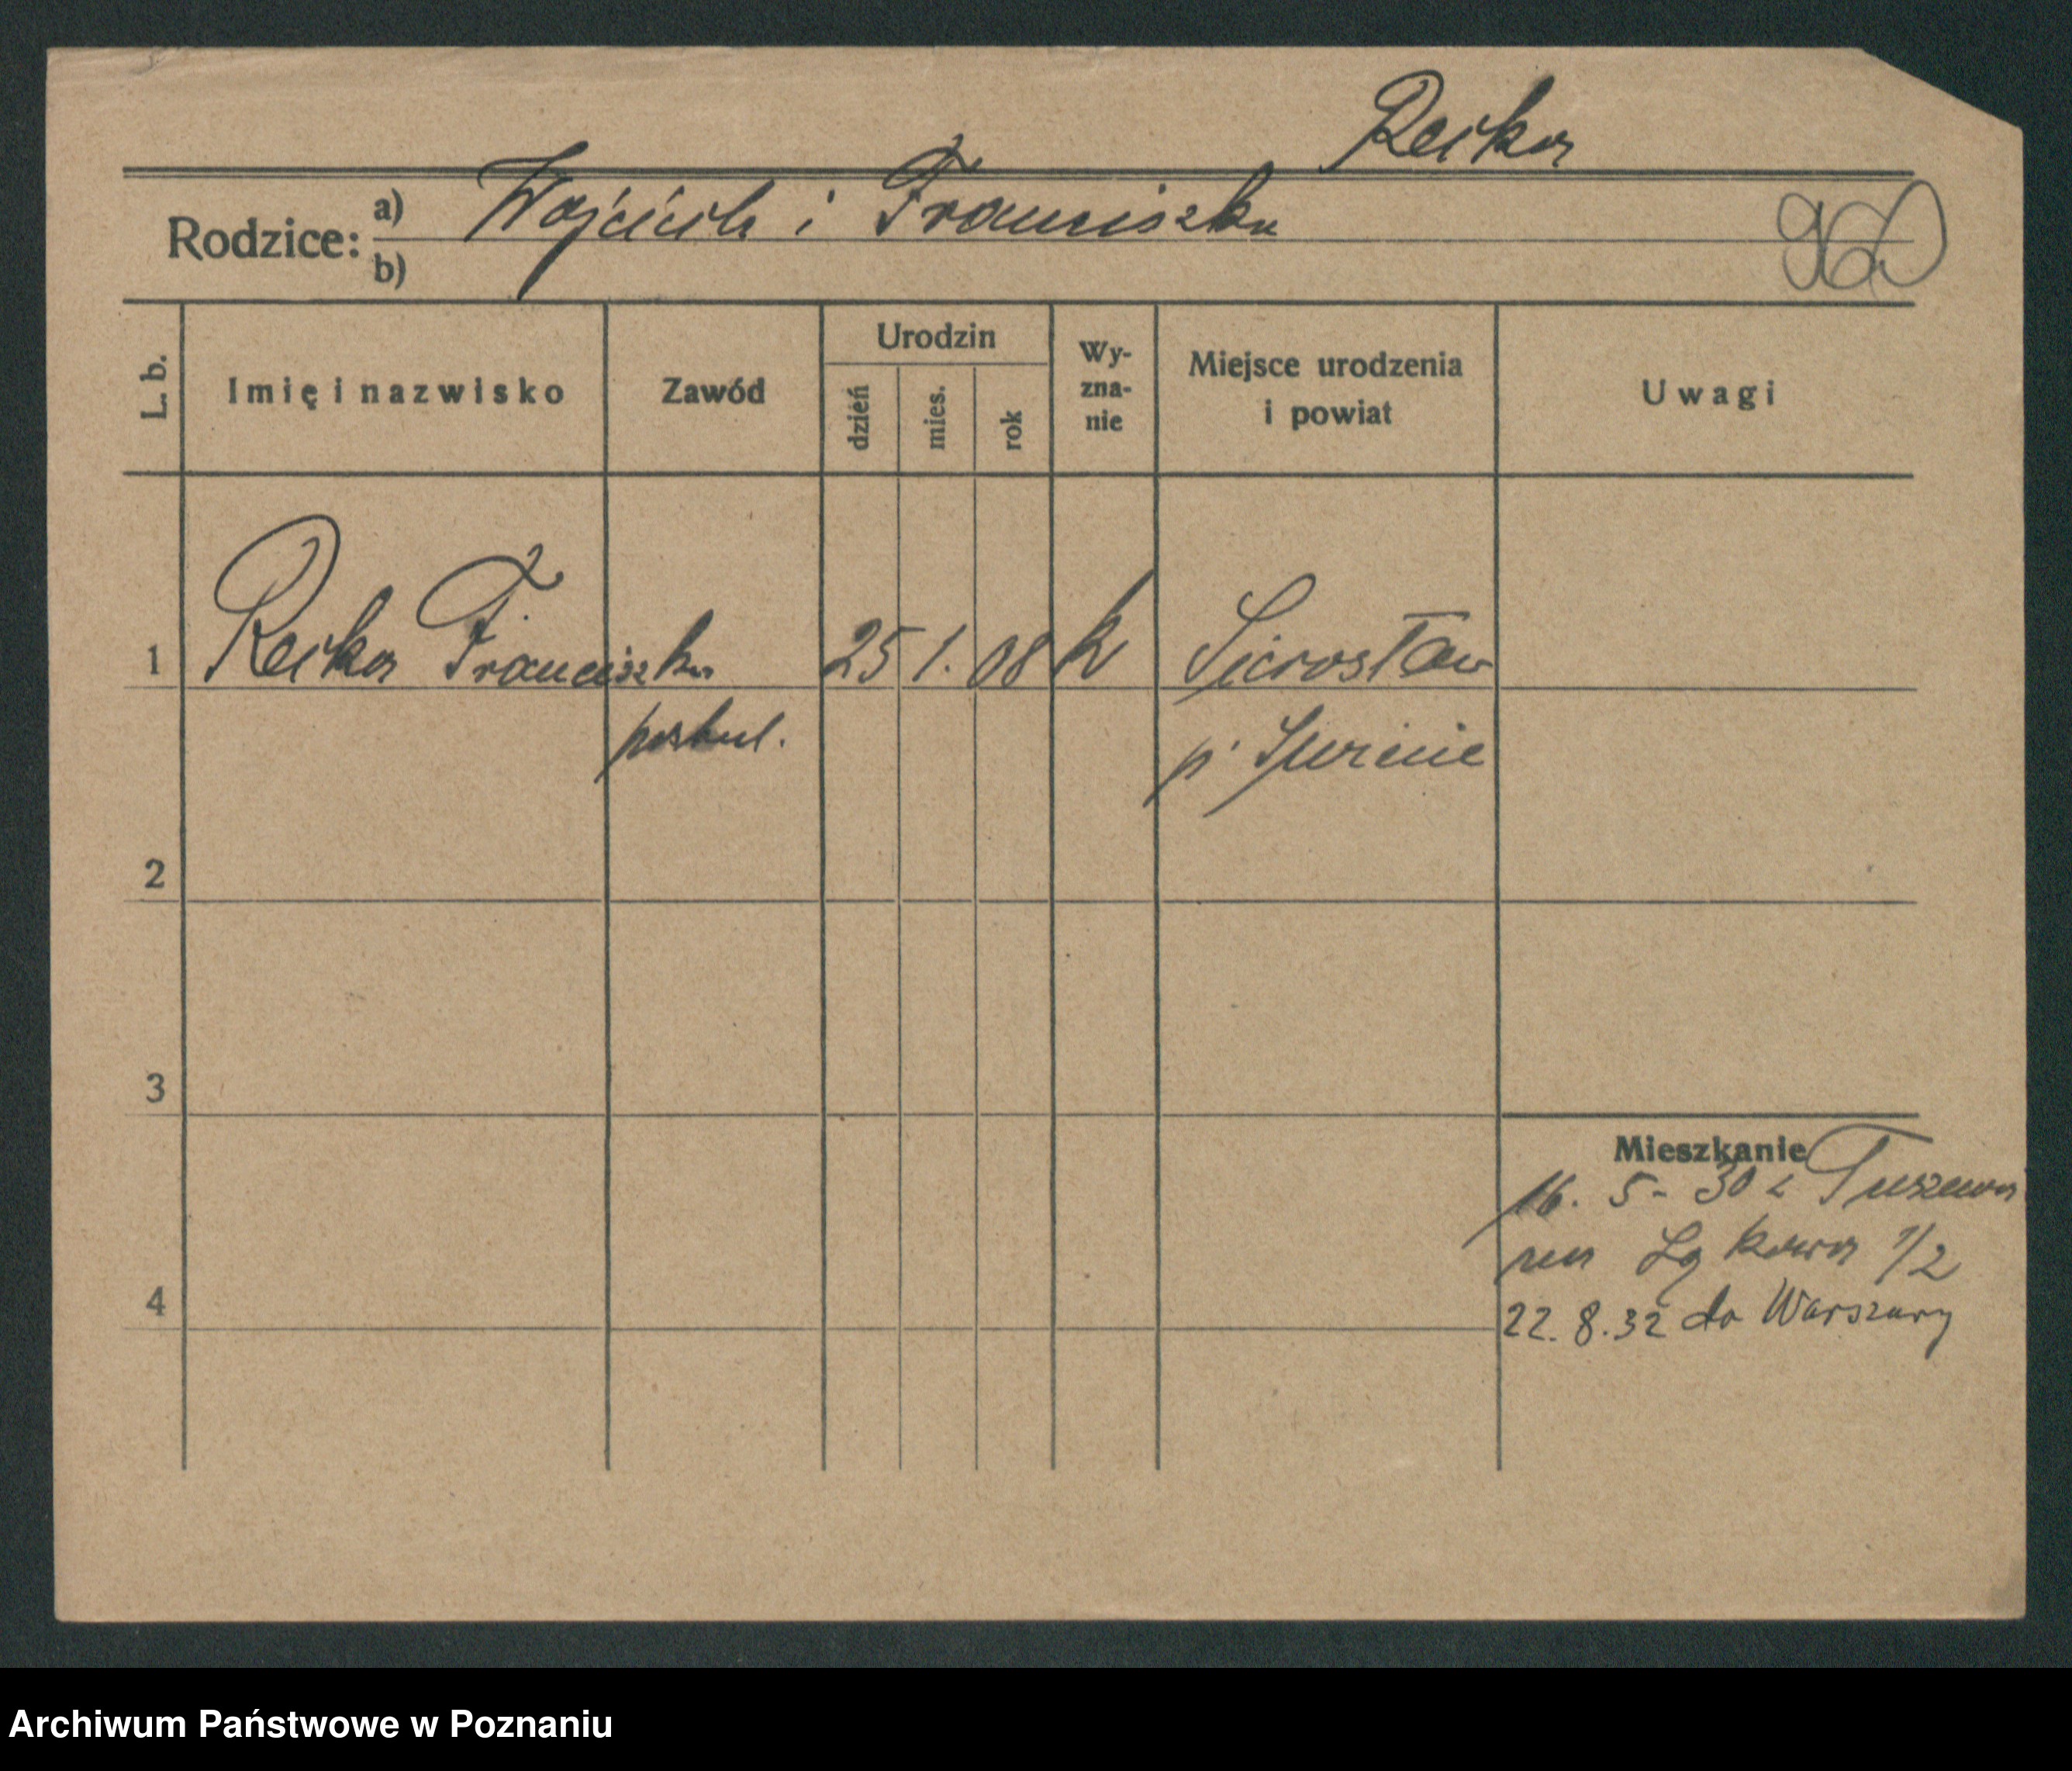 Reika
Rodzice: a) Wojciech i Franciszka
b)
960
L. b. Imię i nazwisko Zawód Urodzin dzień mies. rok Wyznanie Miejsce urodzenia i powiat Uwagi
1 Reika Franciszka 25 1. 08 k Sierosław
postul. p. Świecie
2
3
Mieszkanie
16. 5 - 30 z Tuszewa
na Łąkowa 1/2
4
22. 8. 32 do Warszawy
Archiwum Państwowe w Poznaniu